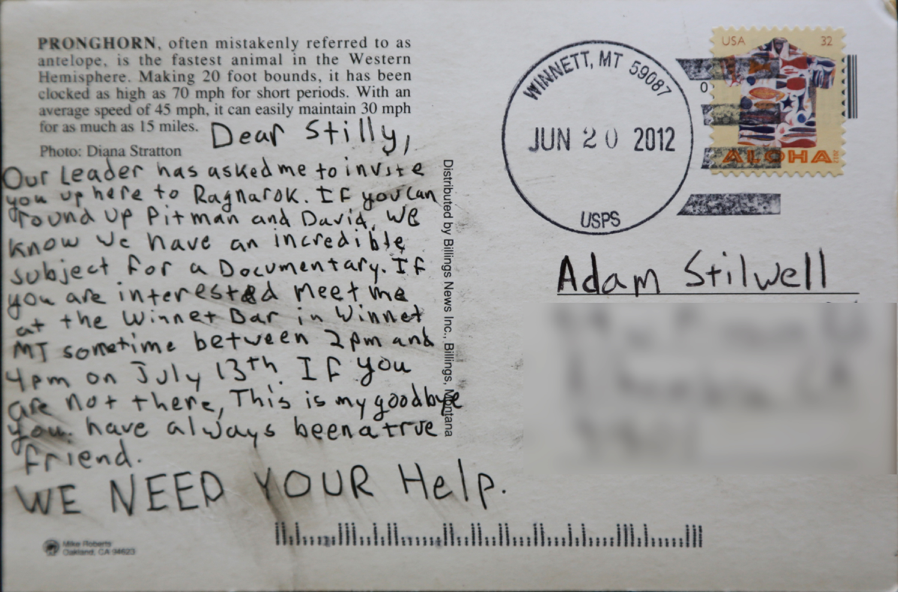 PRONGHORN, often mistakenly referred to as
antelope, is the fastest animal in the Western
Hemisphere. Making 20 foot bounds, it has been
clocked as high as 70 mph for short periods. With an
average speed of 45 mph, it can easily maintain 30 mph
for as much as 15 miles.
Photo: Diana Stratton
Dear Stilly,
Our Leader has asked me to invite
you up here to Ragnarok. If you can
round up Pitman and David, we
know we have an incredible
subject for a Documentary. If
you are interested meet me
at the Winnet Bar in Winnet
MT sometime between 2pm and
4pm on July 13th. If you
are not there, This is my goodbye
you. have always been a true
friend.
WE NEED YOUR Help.
Mike Roberts
Oakland, CA 94623
Distributed by Billings News Inc., Billings, Montana
WINNETT, MT 59087
JUN 20 2012
USPS
USA 32
ALOHA
Adam Stilwell